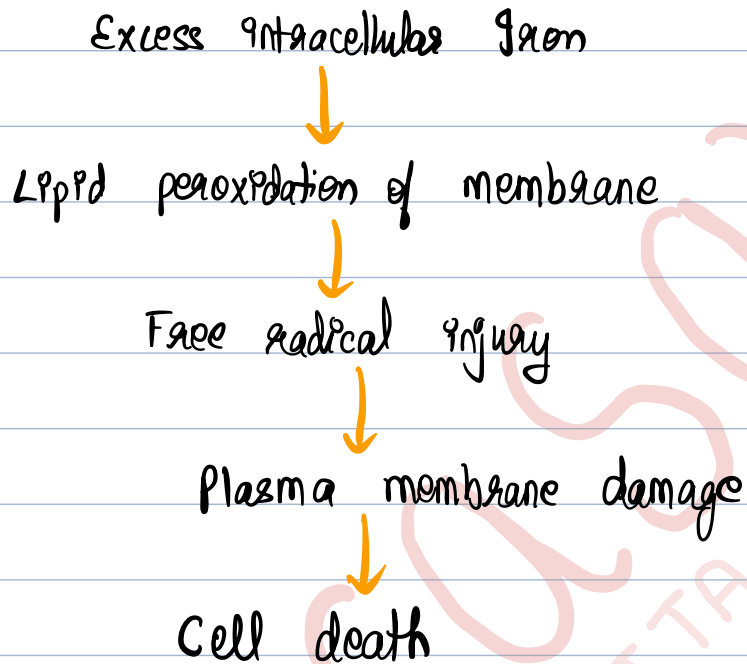 Excess intracellular Iron
Lipid peroxidation of membrane
Free radical injury
Plasma membrane damage
Cell death